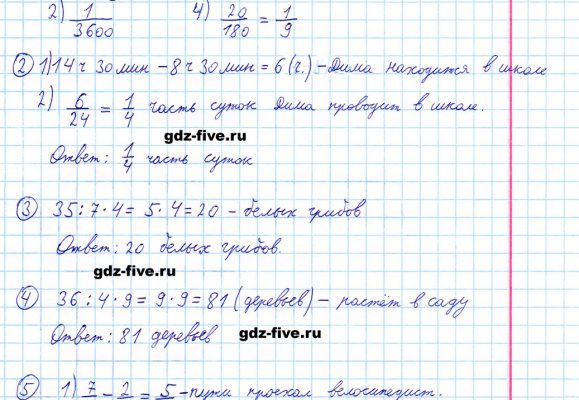 2) 1/3600 4) 20/180 = 1/9
② 1) 14 ч 30 мин – 8 ч 30 мин = 6 (ч.) – Дима находится в школе
2) 6/24 = 1/4 часть суток Дима проводит в школе.
gdz-five.ru
Ответ: 1/4 часть суток
③ 35 : 7 · 4 = 5 · 4 = 20 – белых грибов
Ответ: 20 белых грибов.
gdz-five.ru
④ 36 : 4 · 9 = 9 · 9 = 81 (деревьев) – растёт в саду
Ответ: 81 деревьев
gdz-five.ru
⑤ 1) 7 – 2 = 5 – пути проехал велосипедист.